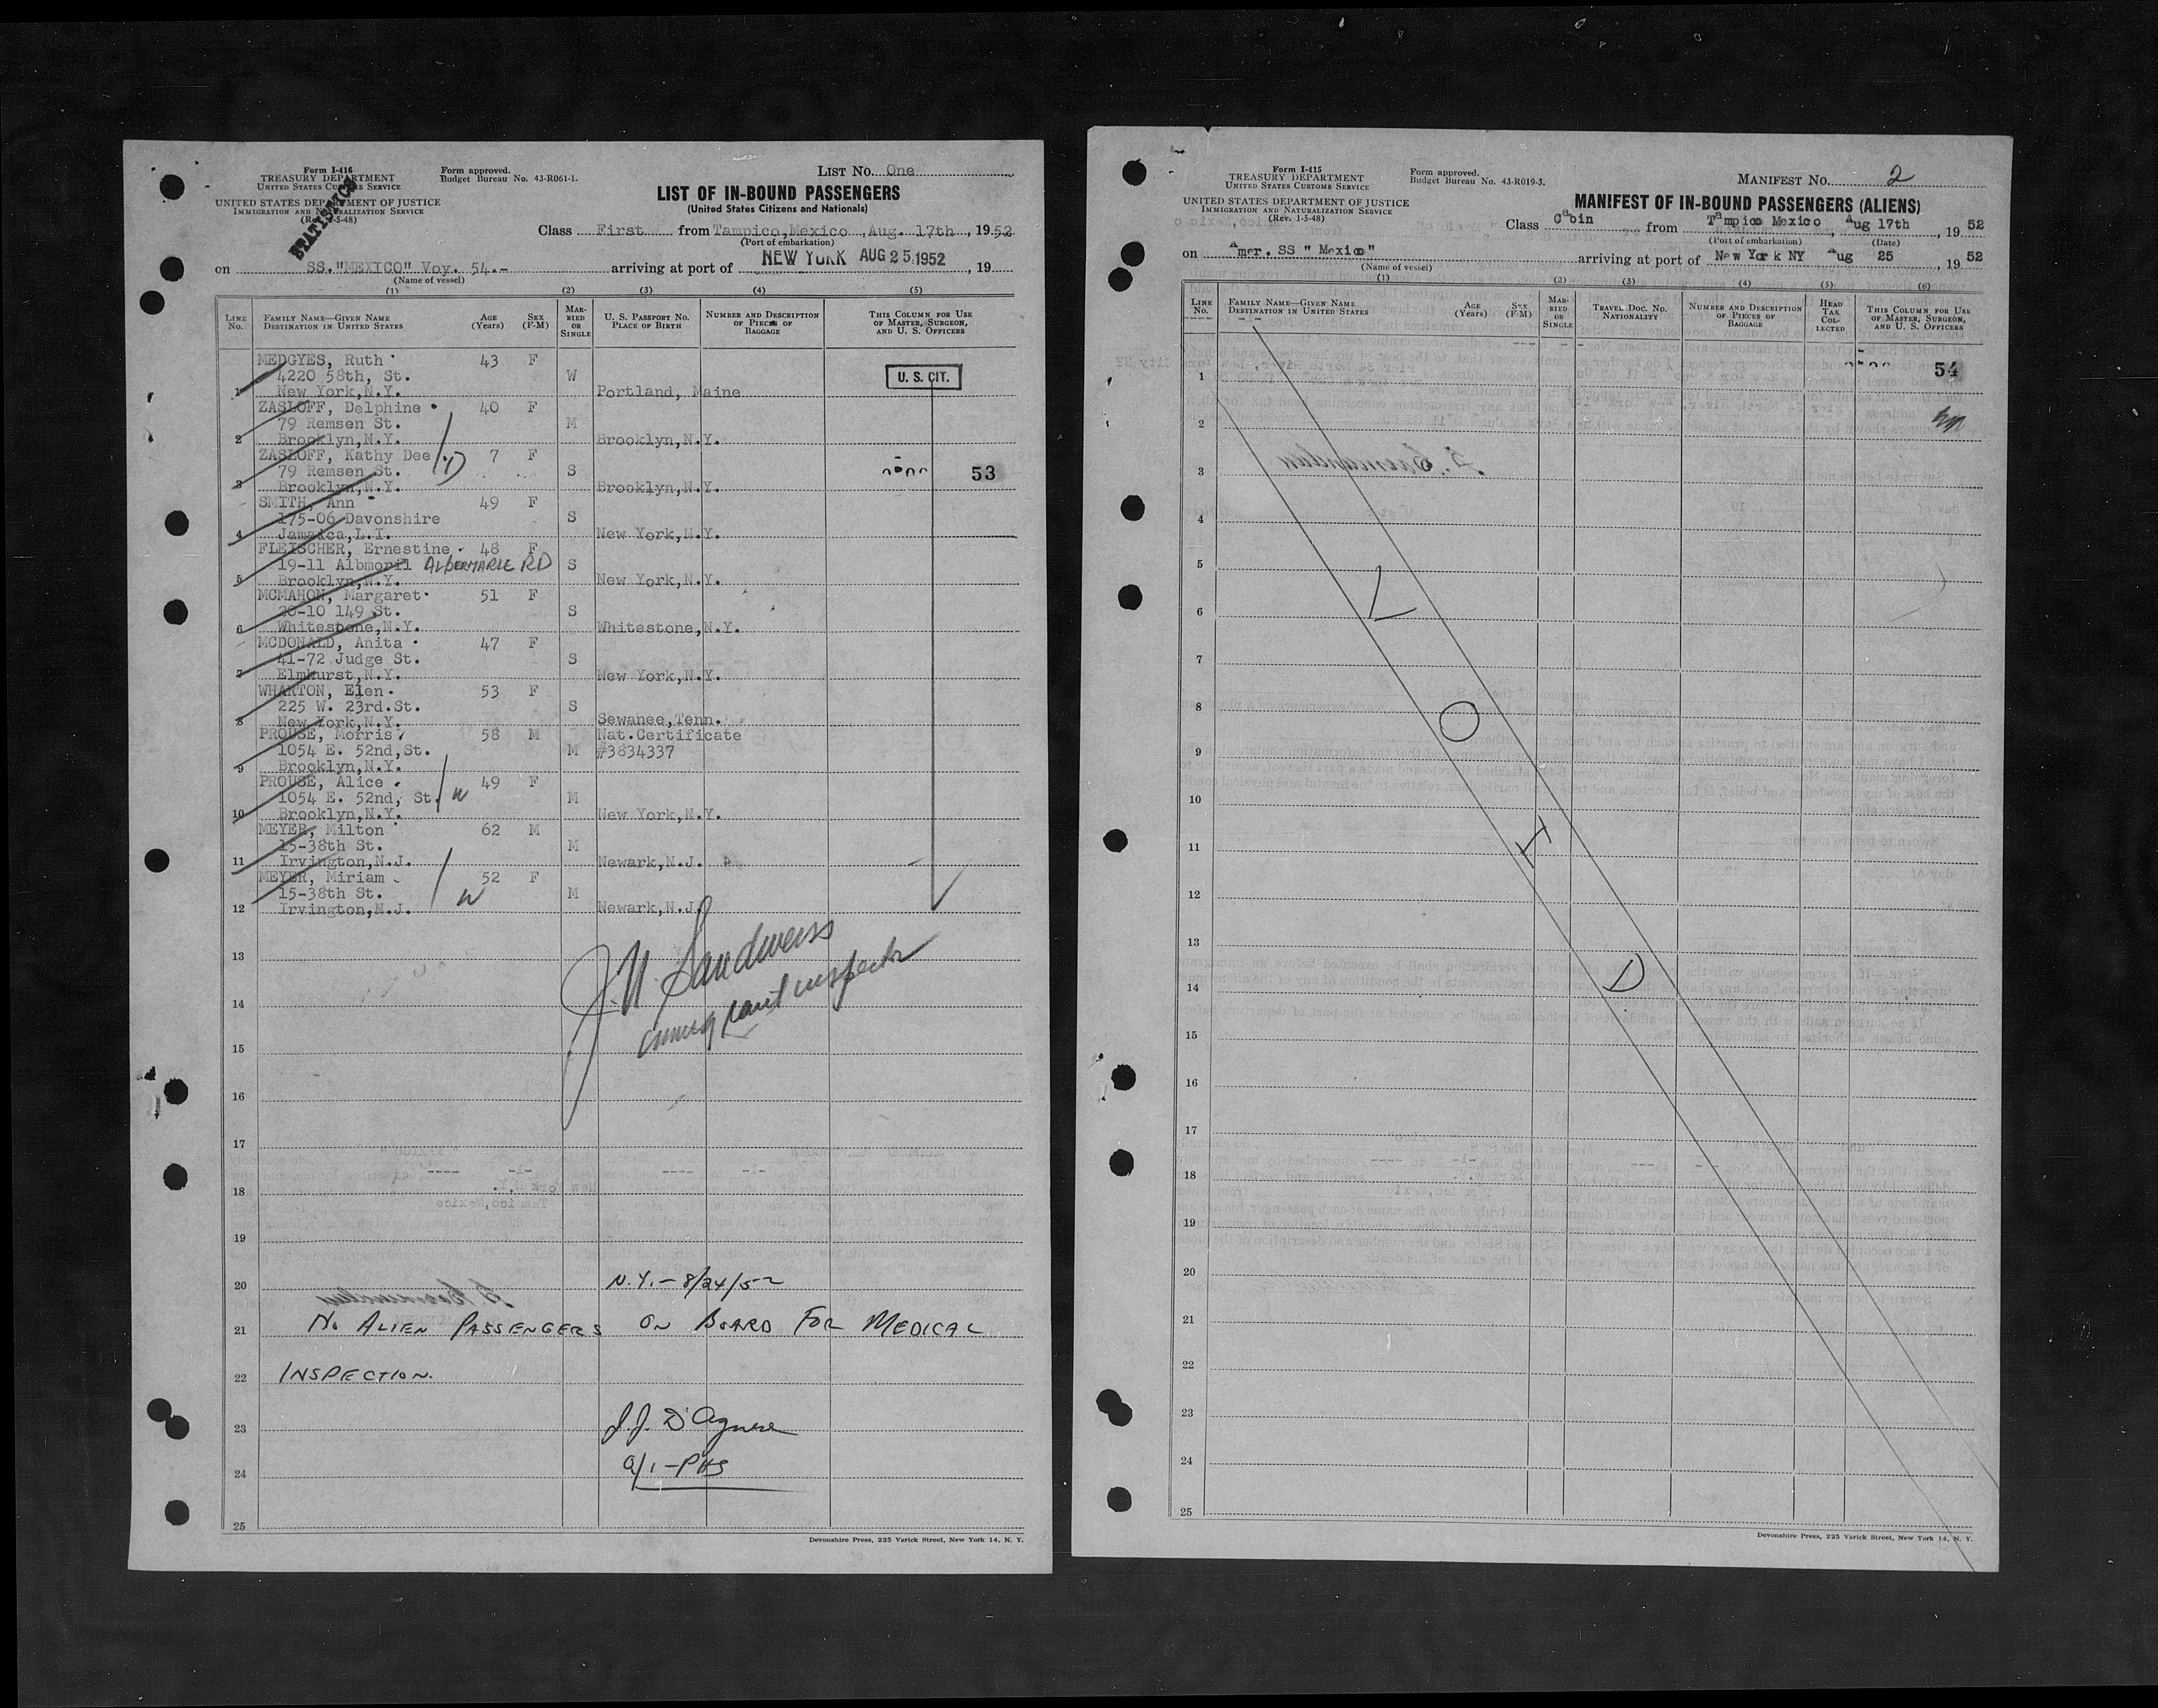 Form I-416
TREASURY DEPARTMENT
UNITED STATES CUSTOMS SERVICE
UNITED STATES DEPARTMENT OF JUSTICE
IMMIGRATION AND NATURALIZATION SERVICE
(Rev. 1-5-48)
STATISTICS
Form approved.
Budget Bureau No. 43-R061-1.
LIST No. One
LIST OF IN-BOUND PASSENGERS
(United States Citizens and Nationals)
Class First from Tampico,Mexico , Aug. 17th , 1952
(Port of embarkation)
on SS."MEXICO" Voy. 54.- arriving at port of NEW YORK AUG 25 1952 , 19
(Name of vessel)
(1) (2) (3) (4) (5)
LINE No.
FAMILY NAME—GIVEN NAME
DESTINATION IN UNITED STATES
AGE (Years)
SEX (F-M)
MARRIED OR SINGLE
U. S. PASSPORT NO.
PLACE OF BIRTH
NUMBER AND DESCRIPTION OF PIECES OF BAGGAGE
THIS COLUMN FOR USE OF MASTER, SURGEON, AND U. S. OFFICERS
MEDGYES, Ruth 43 F
4220 58th, St. W U. S. CIT.
1 New York,N.Y. Portland, Maine
ZASLOFF, Delphine 40 F
79 Remsen St. M
2 Brooklyn,N.Y. Brooklyn,N.Y.
ZASLOFF, Kathy Dee 7 F
79 Remsen St. S 53
3 Brooklyn,N.Y. Brooklyn,N.Y.
SMITH, Ann 49 F
175-06 Davonshire S
4 Jamaica,L.I. New York,N.Y.
FLEISCHER, Ernestine 48 F
19-11 Albmoril ALBERMARLE RD S
5 Brooklyn,N.Y. New York,N.Y.
MCMAHON, Margaret 51 F
20-10 149 St. S
6 Whitestone,N.Y. Whitestone,N.Y.
MCDONALD, Anita 47 F
41-72 Judge St. S
7 Elmhurst,N.Y. New York,N.Y.
WHARTON, Elen 53 F
225 W. 23rd.St. S
8 New York,N.Y. Sewanee,Tenn.
PROUSE, Morris 58 M Nat.Certificate
1054 E. 52nd,St. M #3834337
9 Brooklyn,N.Y.
PROUSE, Alice 49 F
1054 E. 52nd, St. W M
10 Brooklyn,N.Y. New York,N.Y.
MEYER, Milton 62 M
15-38th St. M
11 Irvington,N.J. Newark,N.J.
MEYER, Miriam 52 F
15-38th St. W M
12 Irvington,N.J. Newark,N.J.
13
J. W. Sandweiss
14
immigrant inspector
15
16
17
18
19
20 N.Y.-8/24/52
21 No ALIEN PASSENGERS ON BOARD FOR MEDICAL
22 INSPECTION.
23 J.J. D'Agnese
24 a/1-PHS
25
Devonshire Press, 225 Varick Street, New York 14, N. Y.
Form I-415
TREASURY DEPARTMENT
UNITED STATES CUSTOMS SERVICE
UNITED STATES DEPARTMENT OF JUSTICE
IMMIGRATION AND NATURALIZATION SERVICE
(Rev. 1-5-48)
Form approved.
Budget Bureau No. 43-R019-3.
MANIFEST No. 2
MANIFEST OF IN-BOUND PASSENGERS (ALIENS)
Class Cabin from Tampico Mexico , Aug 17th , 19 52
(Port of embarkation) (Date)
on Amer. SS " Mexico" arriving at port of New York NY Aug 25 , 19 52
(Name of vessel)
(1) (2) (3) (4) (5) (6)
LINE No.
FAMILY NAME—GIVEN NAME
DESTINATION IN UNITED STATES
AGE (Years)
SEX (F-M)
MARRIED OR SINGLE
TRAVEL DOC. NO.
NATIONALITY
NUMBER AND DESCRIPTION OF PIECES OF BAGGAGE
HEAD TAX COLLECTED
THIS COLUMN FOR USE OF MASTER, SURGEON, AND U. S. OFFICERS
1 54
2
3
4
5
6
7
8
9
10
11
12
13
14
15
16
17
18
19
20
21
22
23
24
25
V O I D
Devonshire Press, 225 Varick Street, New York 14, N. Y.